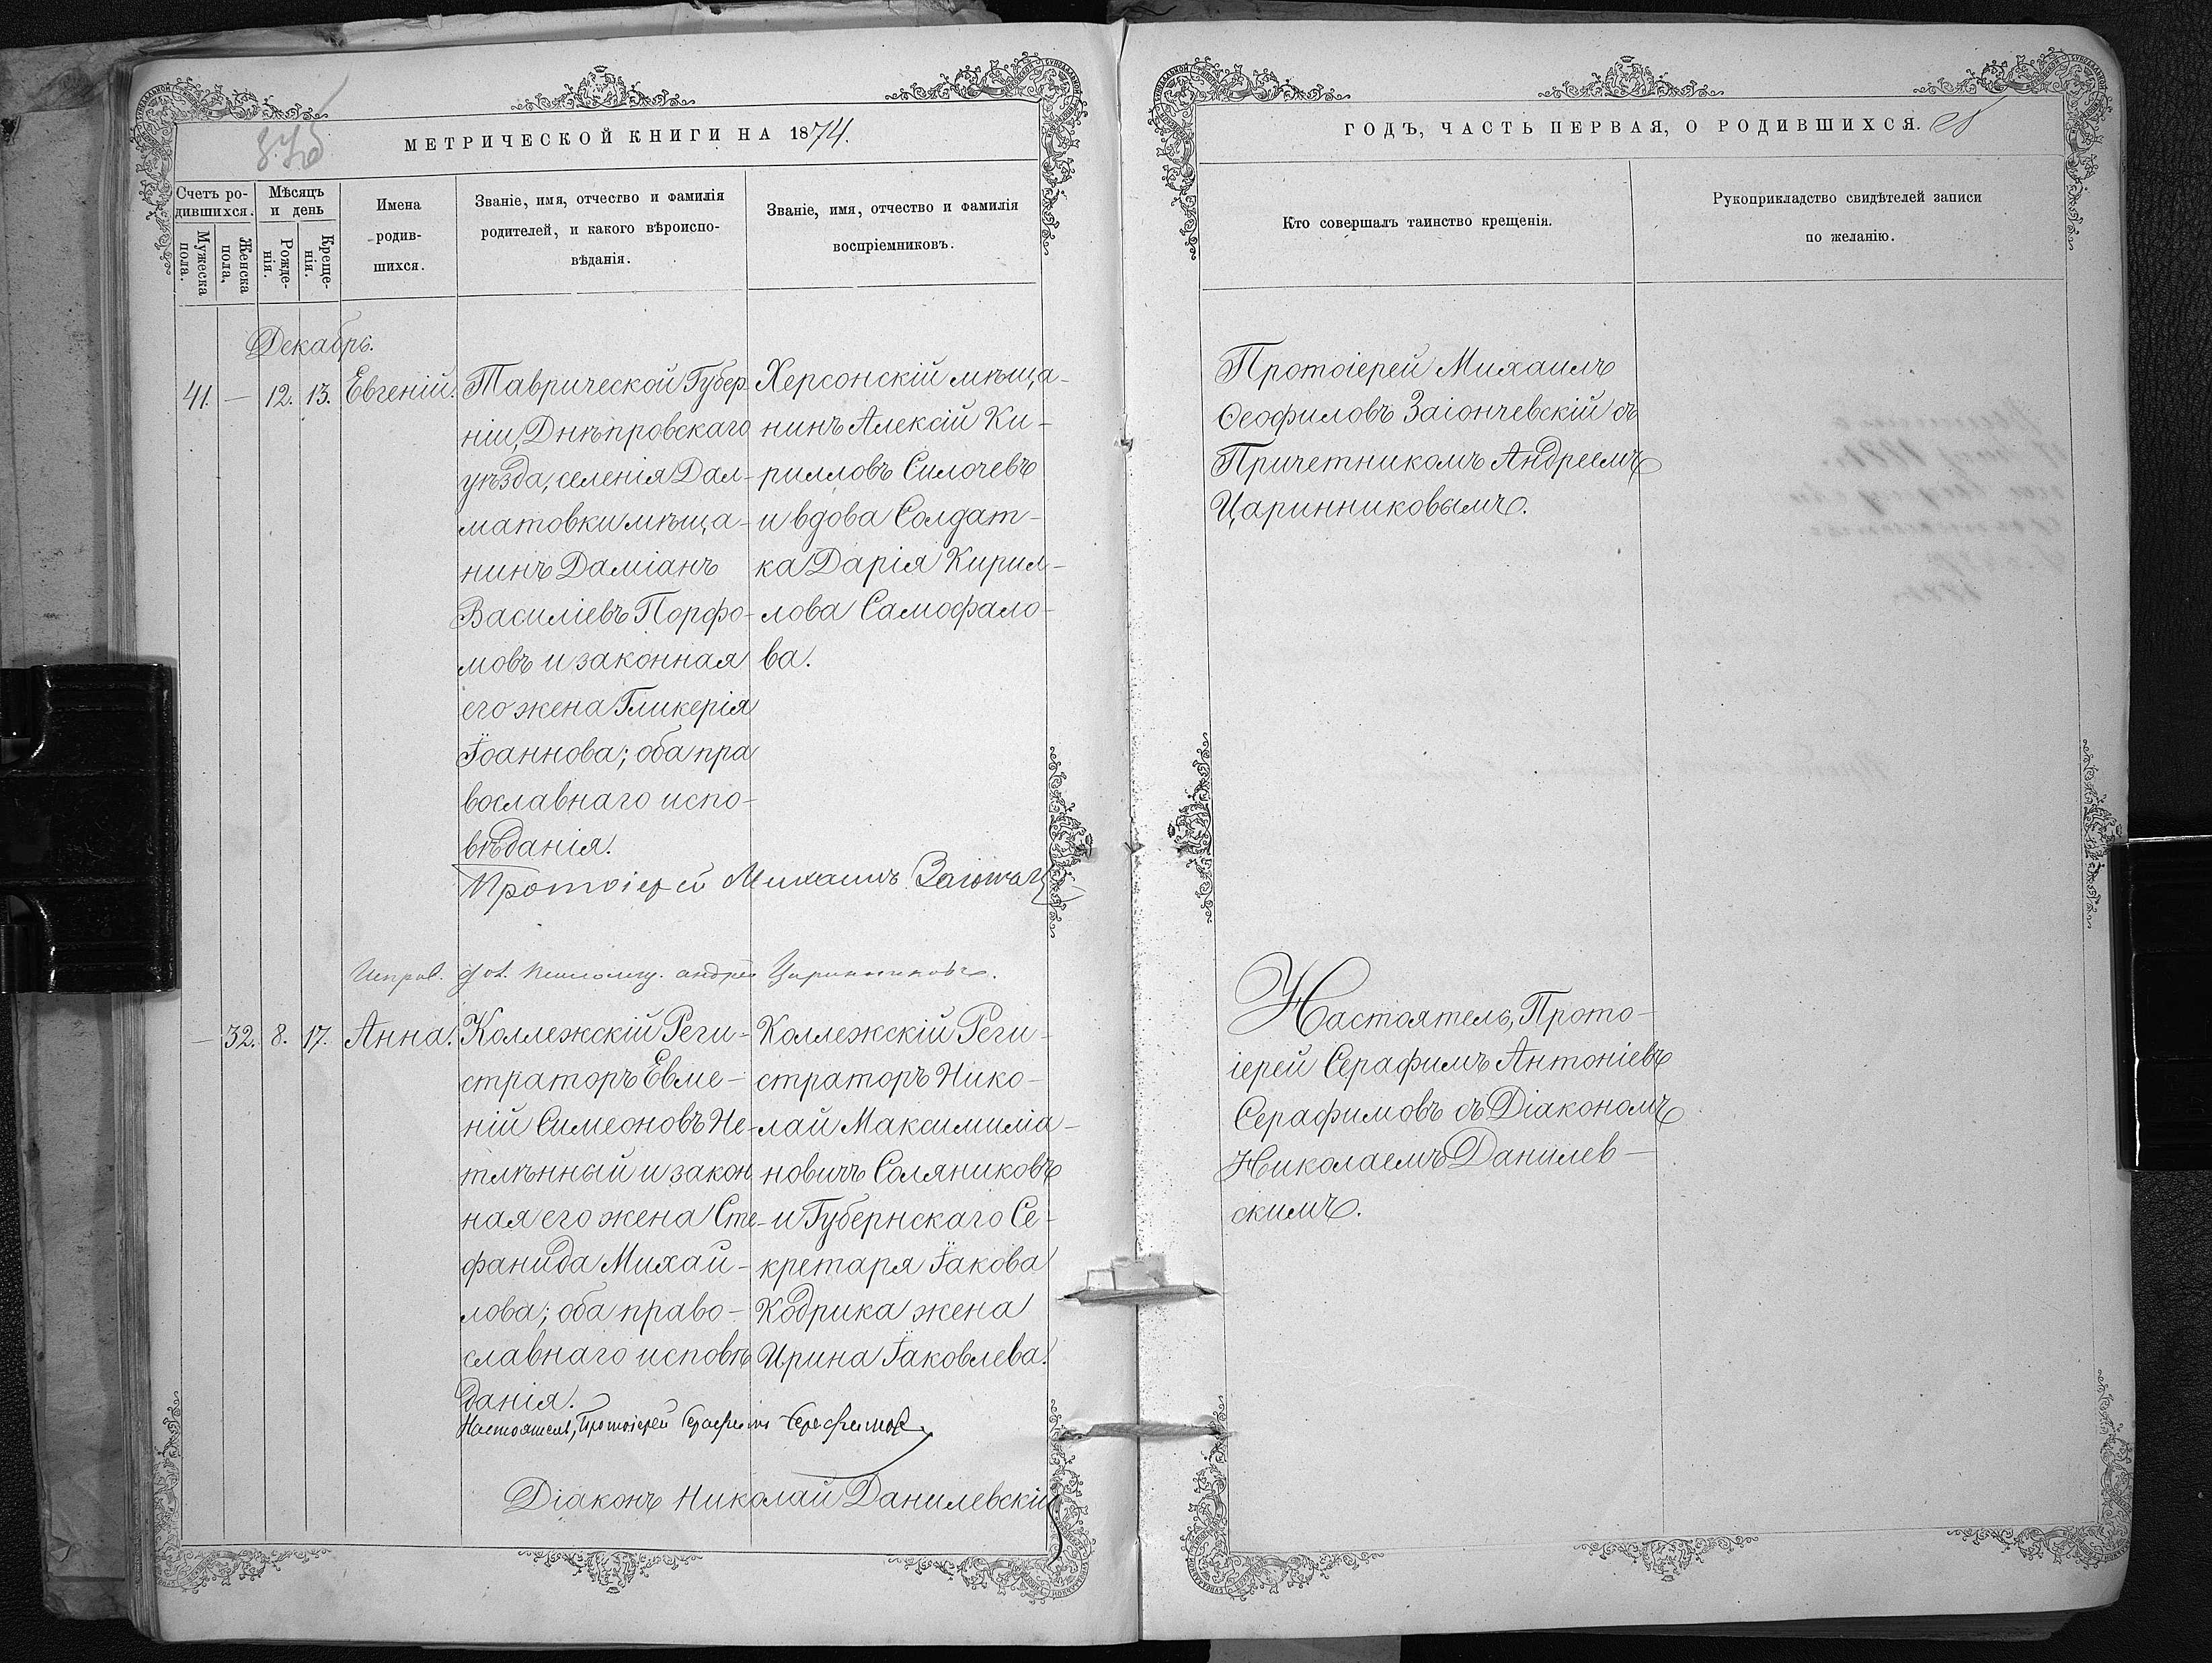 МЕТРИЧЕСКОЙ КНИГИ НА 1874.
Счетъ ро-
дившихся.
Мужеска
пола.
Женска
пола.
Мѣсяцъ
и день
Рожде-
нія.
Креще-
нія.
Имена
родив-
шихся.
Званіе, имя, отчество и фамилія
родителей, и какого вѣроиспо-
вѣданія.
Званіе, имя, отчество и фамилія
воспріемниковъ.
Декабрь.
41. — 12. 13. Евгеній.
Таврической Губер
ніи, Днѣпровскаго
уѣзда, селенія Дал-
матовки мѣща-
нинъ Даміанъ
Василіевъ Порфо-
мовъ и законная
его жена Гликерія
Іоаннова; оба пра
вославнаго испо-
вѣданія.
Херсонскій мѣща-
нинъ Алексій Ки-
рилловъ Силочевъ
и вдова Солдат-
ка Дарія Кирил-
лова Самофало-
ва.
Протоіерей Михаилъ
Андрей Царинниковъ.
— 32. 8. 17. Анна.
Коллежскій Реги-
страторъ Евме-
ній Симеоновъ Не-
тлѣнный и закон
ная его жена Сте-
фанида Михай-
лова; оба право-
славнаго исповѣ
данія.
Коллежскій Реги-
страторъ Нико-
лай Максимиліа-
новичъ Соляниковъ
и Губернскаго Се-
кретаря Іакова
Кодрика жена
Ирина Іаковлева.
Настоятель, Протоіерей Серафимъ Серафимовъ
Діаконъ Николай Данилевскій
ГОДЪ, ЧАСТЬ ПЕРВАЯ, О РОДИВШИХСЯ.
Кто совершалъ таинство крещенія.
Рукоприкладство свидѣтелей записи
по желанію.
Протоіерей Михаилъ
Ѳеофиловъ Заіончевскій съ
Причетникомъ Андреемъ
Царинниковымъ.
Настоятель, Прото-
іерей Серафимъ Антоніевъ
Серафимовъ съ Діакономъ
Николаемъ Данилев-
скимъ.